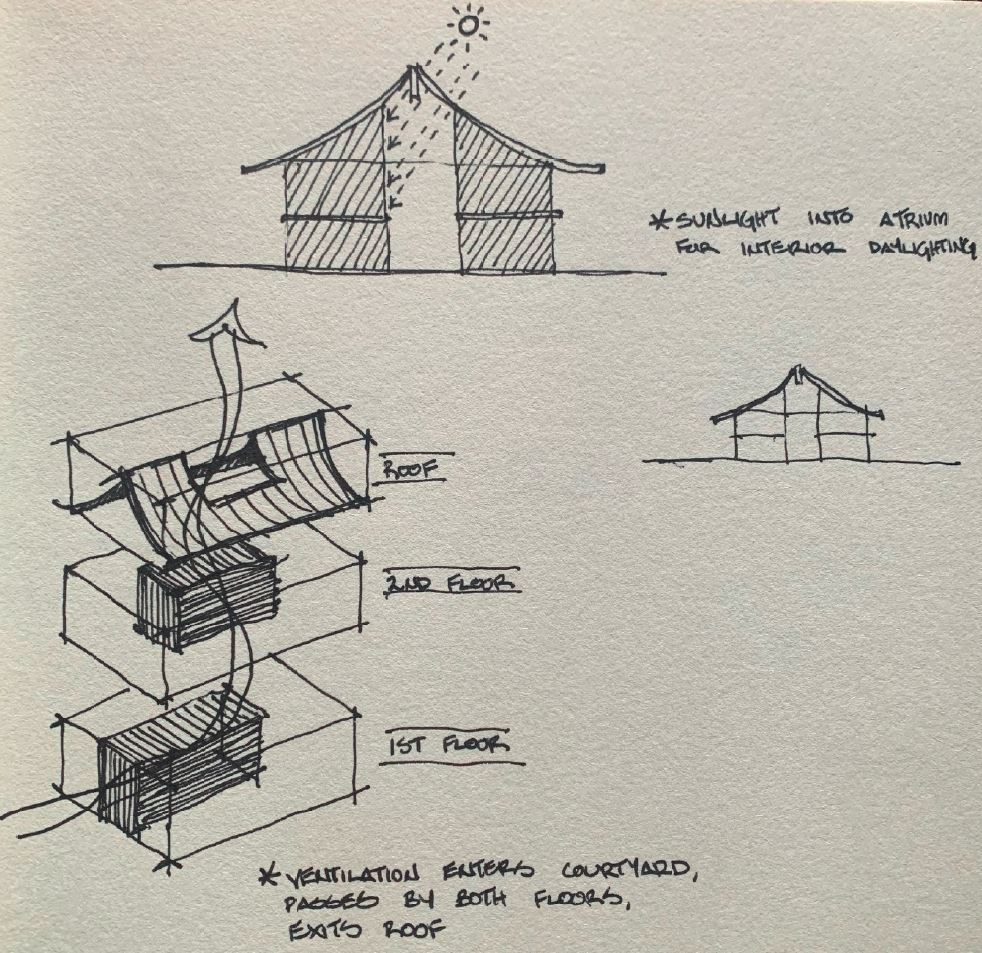 * SUNLIGHT INTO ATRIUM
FOR INTERIOR DAYLIGHTING
ROOF
2ND FLOOR
1ST FLOOR
* VENTILATION ENTERS COURTYARD,
PASSES BY BOTH FLOORS,
EXITS ROOF